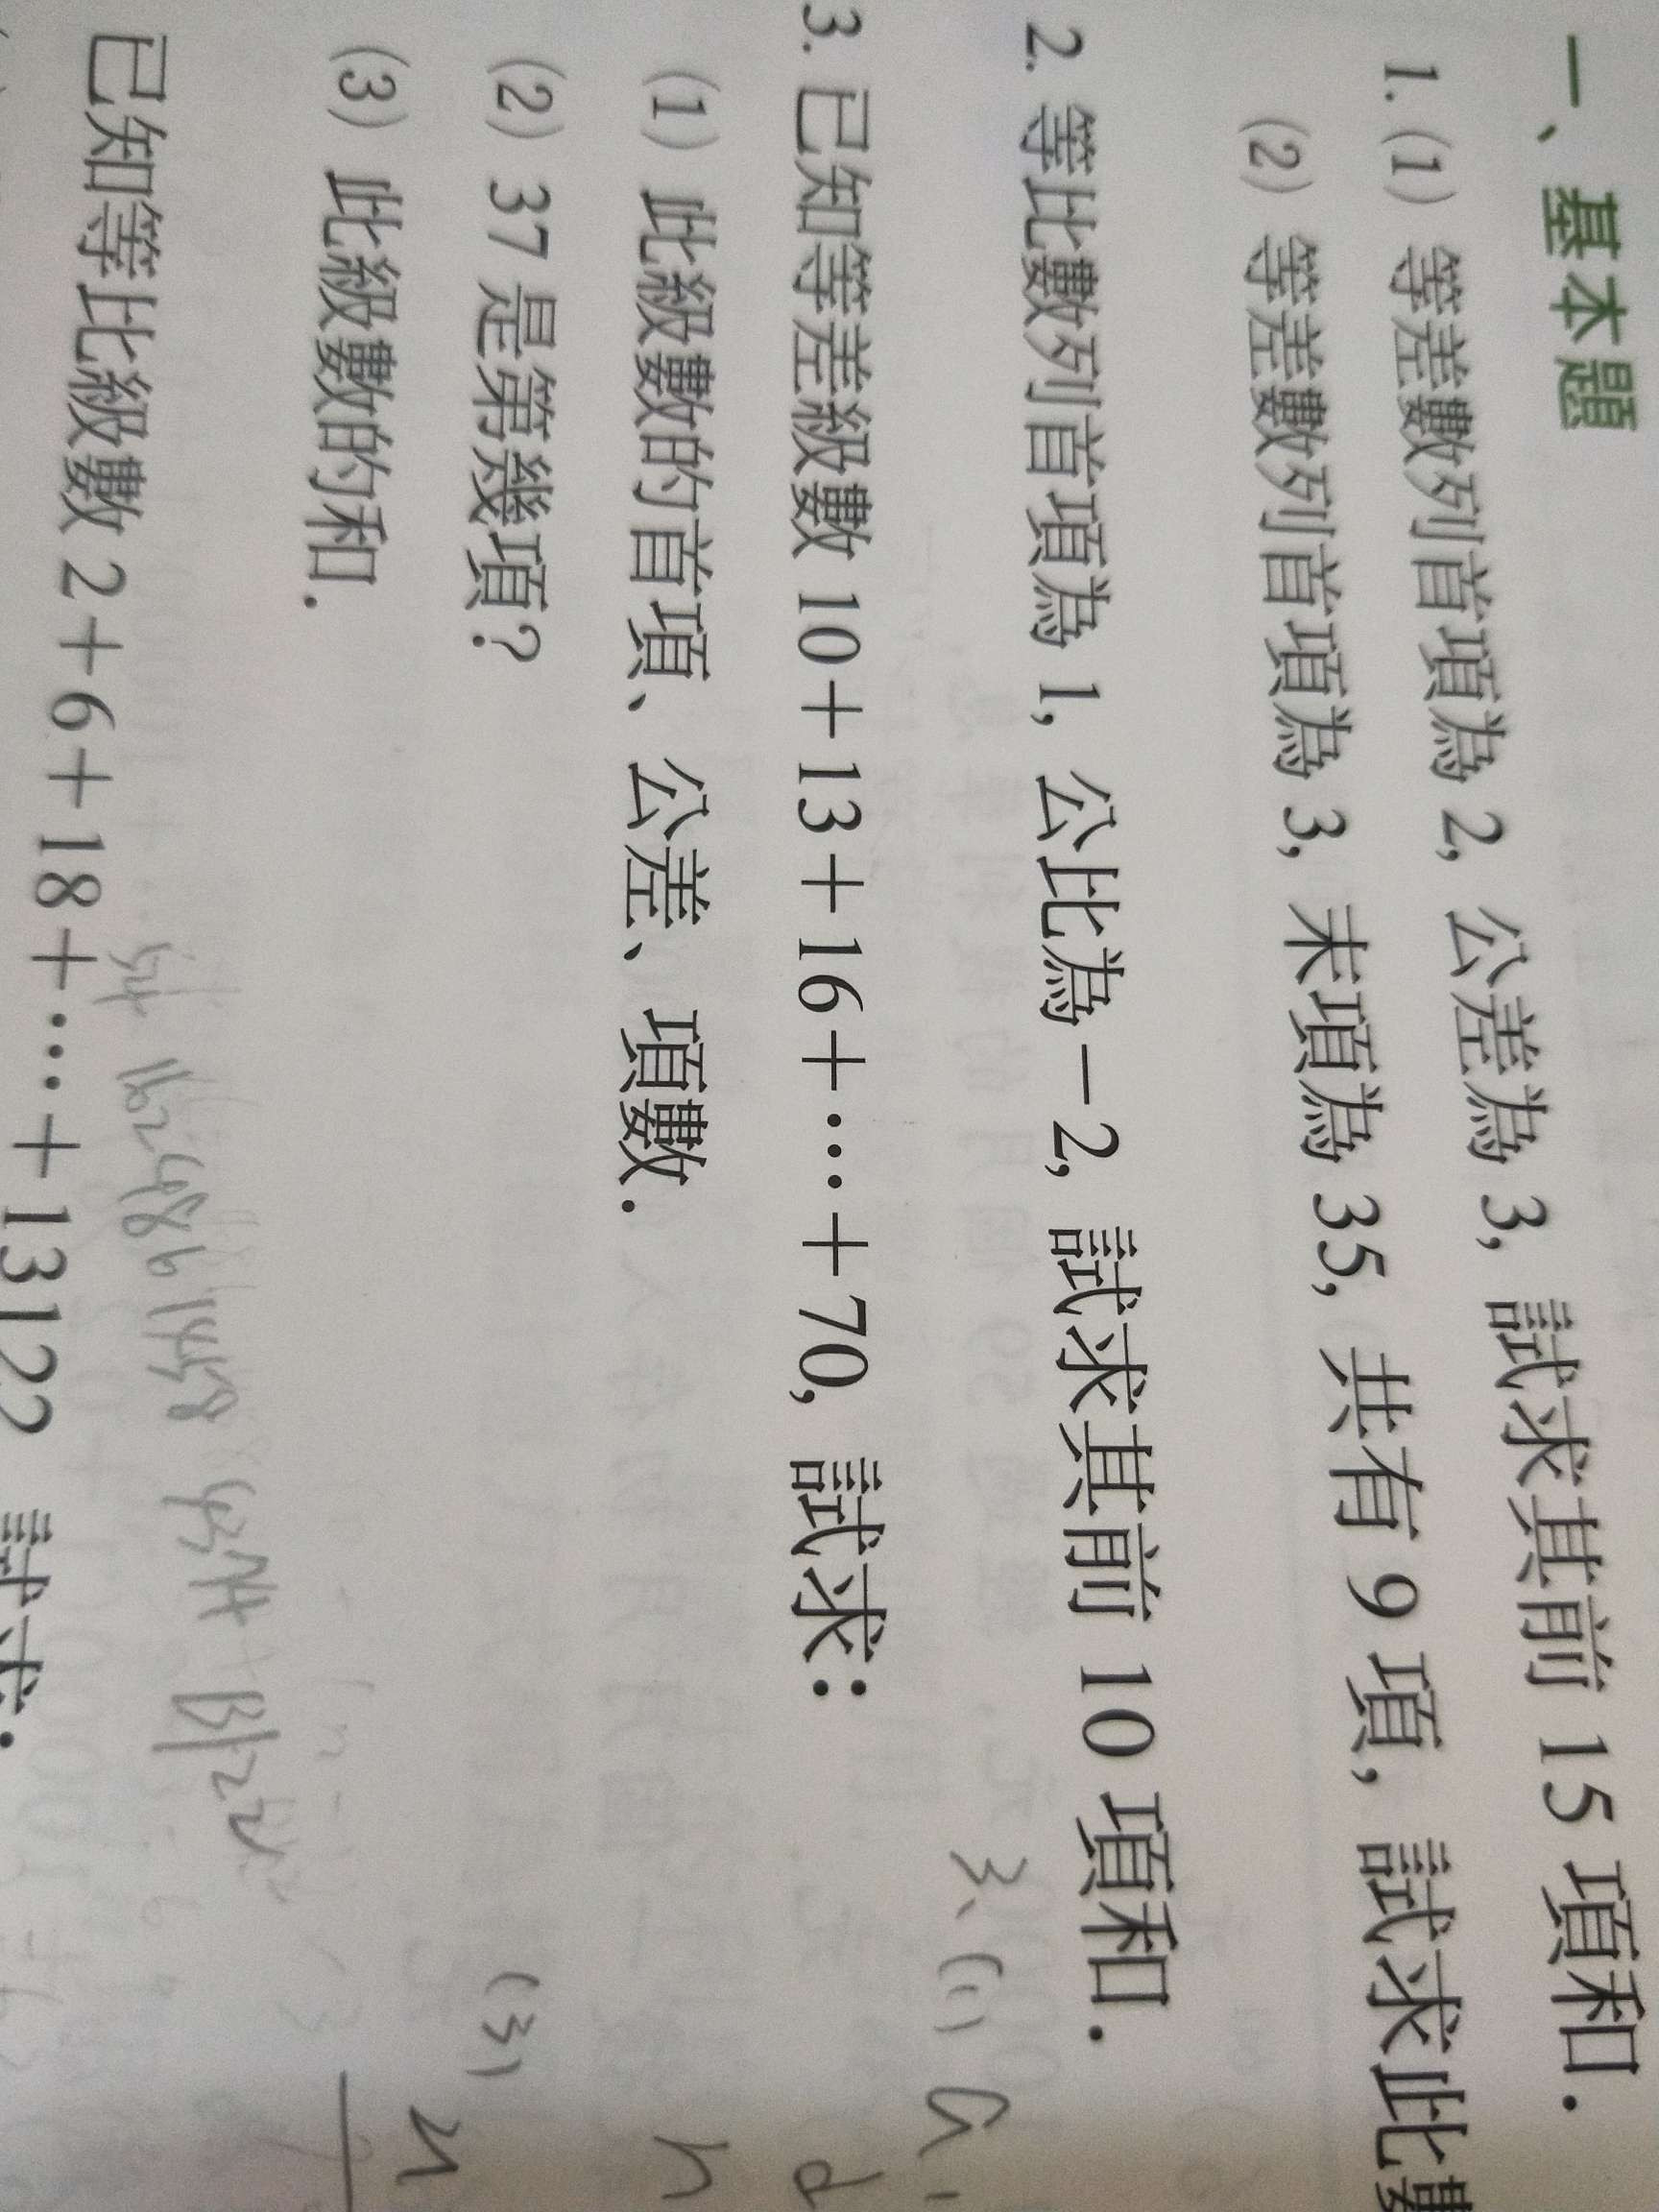 一、基本題
1. (1) 等差數列首項為 2, 公差為 3, 試求其前 15 項和.
(2) 等差數列首項為 3, 末項為 35, 共有 9 項, 試求此
2. 等比數列首項為 1, 公比為 -2, 試求其前 10 項和.
3. 已知等差級數 10+13+16+⋯+70, 試求:
(1) 此級數的首項、公差、項數.
(2) 37 是第幾項?
(3) 此級數的和.
已知等比級數 2+6+18+⋯+13122 試求:
54 162 486 1458 4374 13122
3、(1) a1
d
n
(3)
n